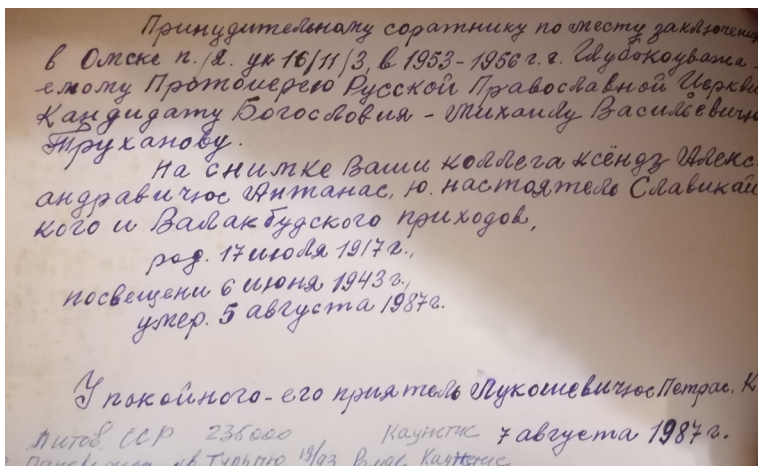 Принудительному соратнику по месту заключения
в Омске п./я. ук 16/11/3, в 1953-1956 г.г. Глубокоуважа-
емому Протоиерею Русской Православной Церкви
Кандидату Богословия - Михаилу Васильевичу
Труханову.
На снимке Ваши коллега ксёндз Алекс-
андравичюс Антанас, ю. настоятель Славикай
кого и Валакбудского приходов,
род. 17 июля 1917 г.,
посвещени 6 июня 1943 г.,
умер. 5 августа 1987 г.
У покойного - его приятель Лукошевичюс Петрас. К
Литов. ССР 236000 Каунас 7 августа 1987 г.
19/93